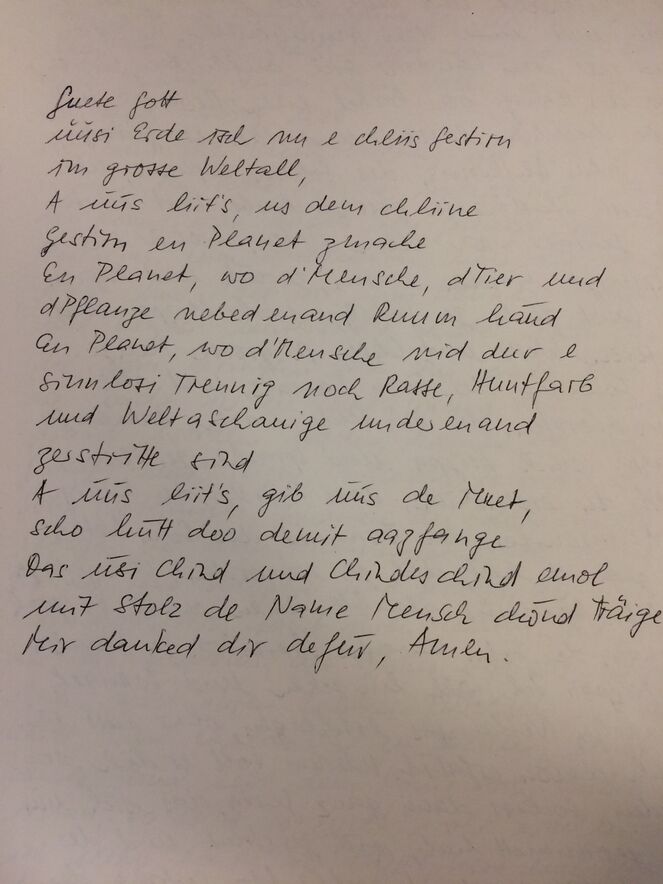 Guete Gott
üüsi Erde isch nu e chliis Gestirn
im grosse Weltall,
A üüs liit's, us dem chliine
Gestirn en Planet zmache
En Planet, wo d'Mensche, dTier und
dPflanze nebedenand Ruum händ
En Planet, wo d'Mensche nid dur e
sinnlosi Trennig noch Rasse, Huutfarb
und Weltaschauige underenand
zerstritte sind
A üüs liit's, gib üüs de Muet,
scho hütt doo demit aazfange
Das üsi Chind und Chindeschind emol
mit Stolz de Name Mensch chönd träige
Mir danked dir defür, Amen.